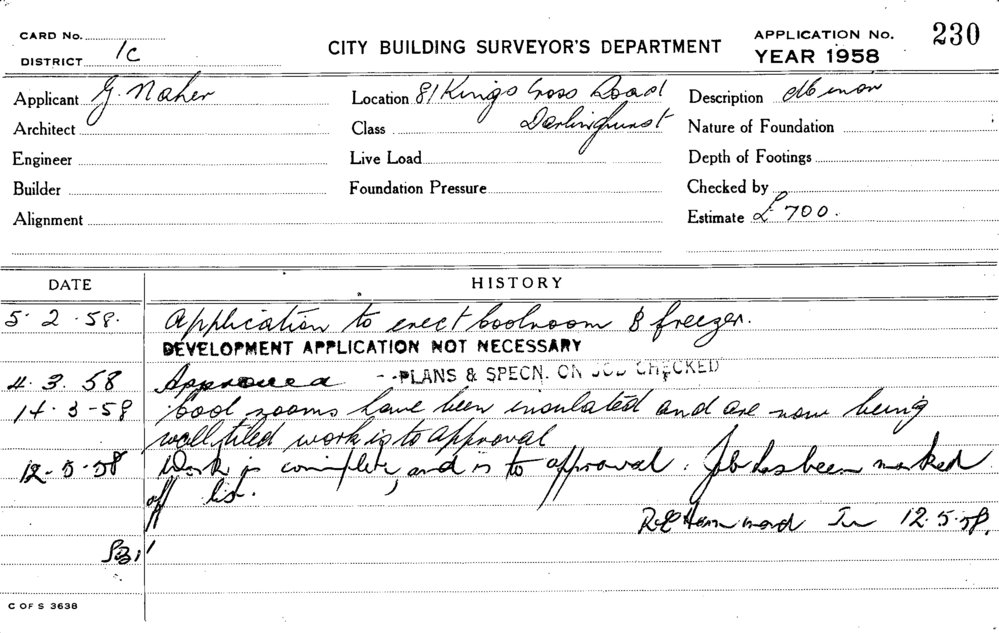 CARD No.
DISTRICT 1C
CITY BUILDING SURVEYOR'S DEPARTMENT
APPLICATION No. 230
YEAR 1958
Applicant G. Naher
Location 81 Kings Cross Road
Description Minor
Architect
Class Darlinghurst
Nature of Foundation
Engineer
Live Load
Depth of Footings
Builder
Foundation Pressure
Checked by
Alignment
Estimate £700.
DATE HISTORY
5.2.58. Application to erect Coolroom & freezer.
DEVELOPMENT APPLICATION NOT NECESSARY
4.3.58 Approved PLANS & SPECN. ON JOB CHECKED
14-3-58 Cool rooms have been insulated and are now being
wall tiled work is to approval
12-5-58 Work is complete, and is to approval. Job has been marked
off list.
12.5.58.
C OF S 3638